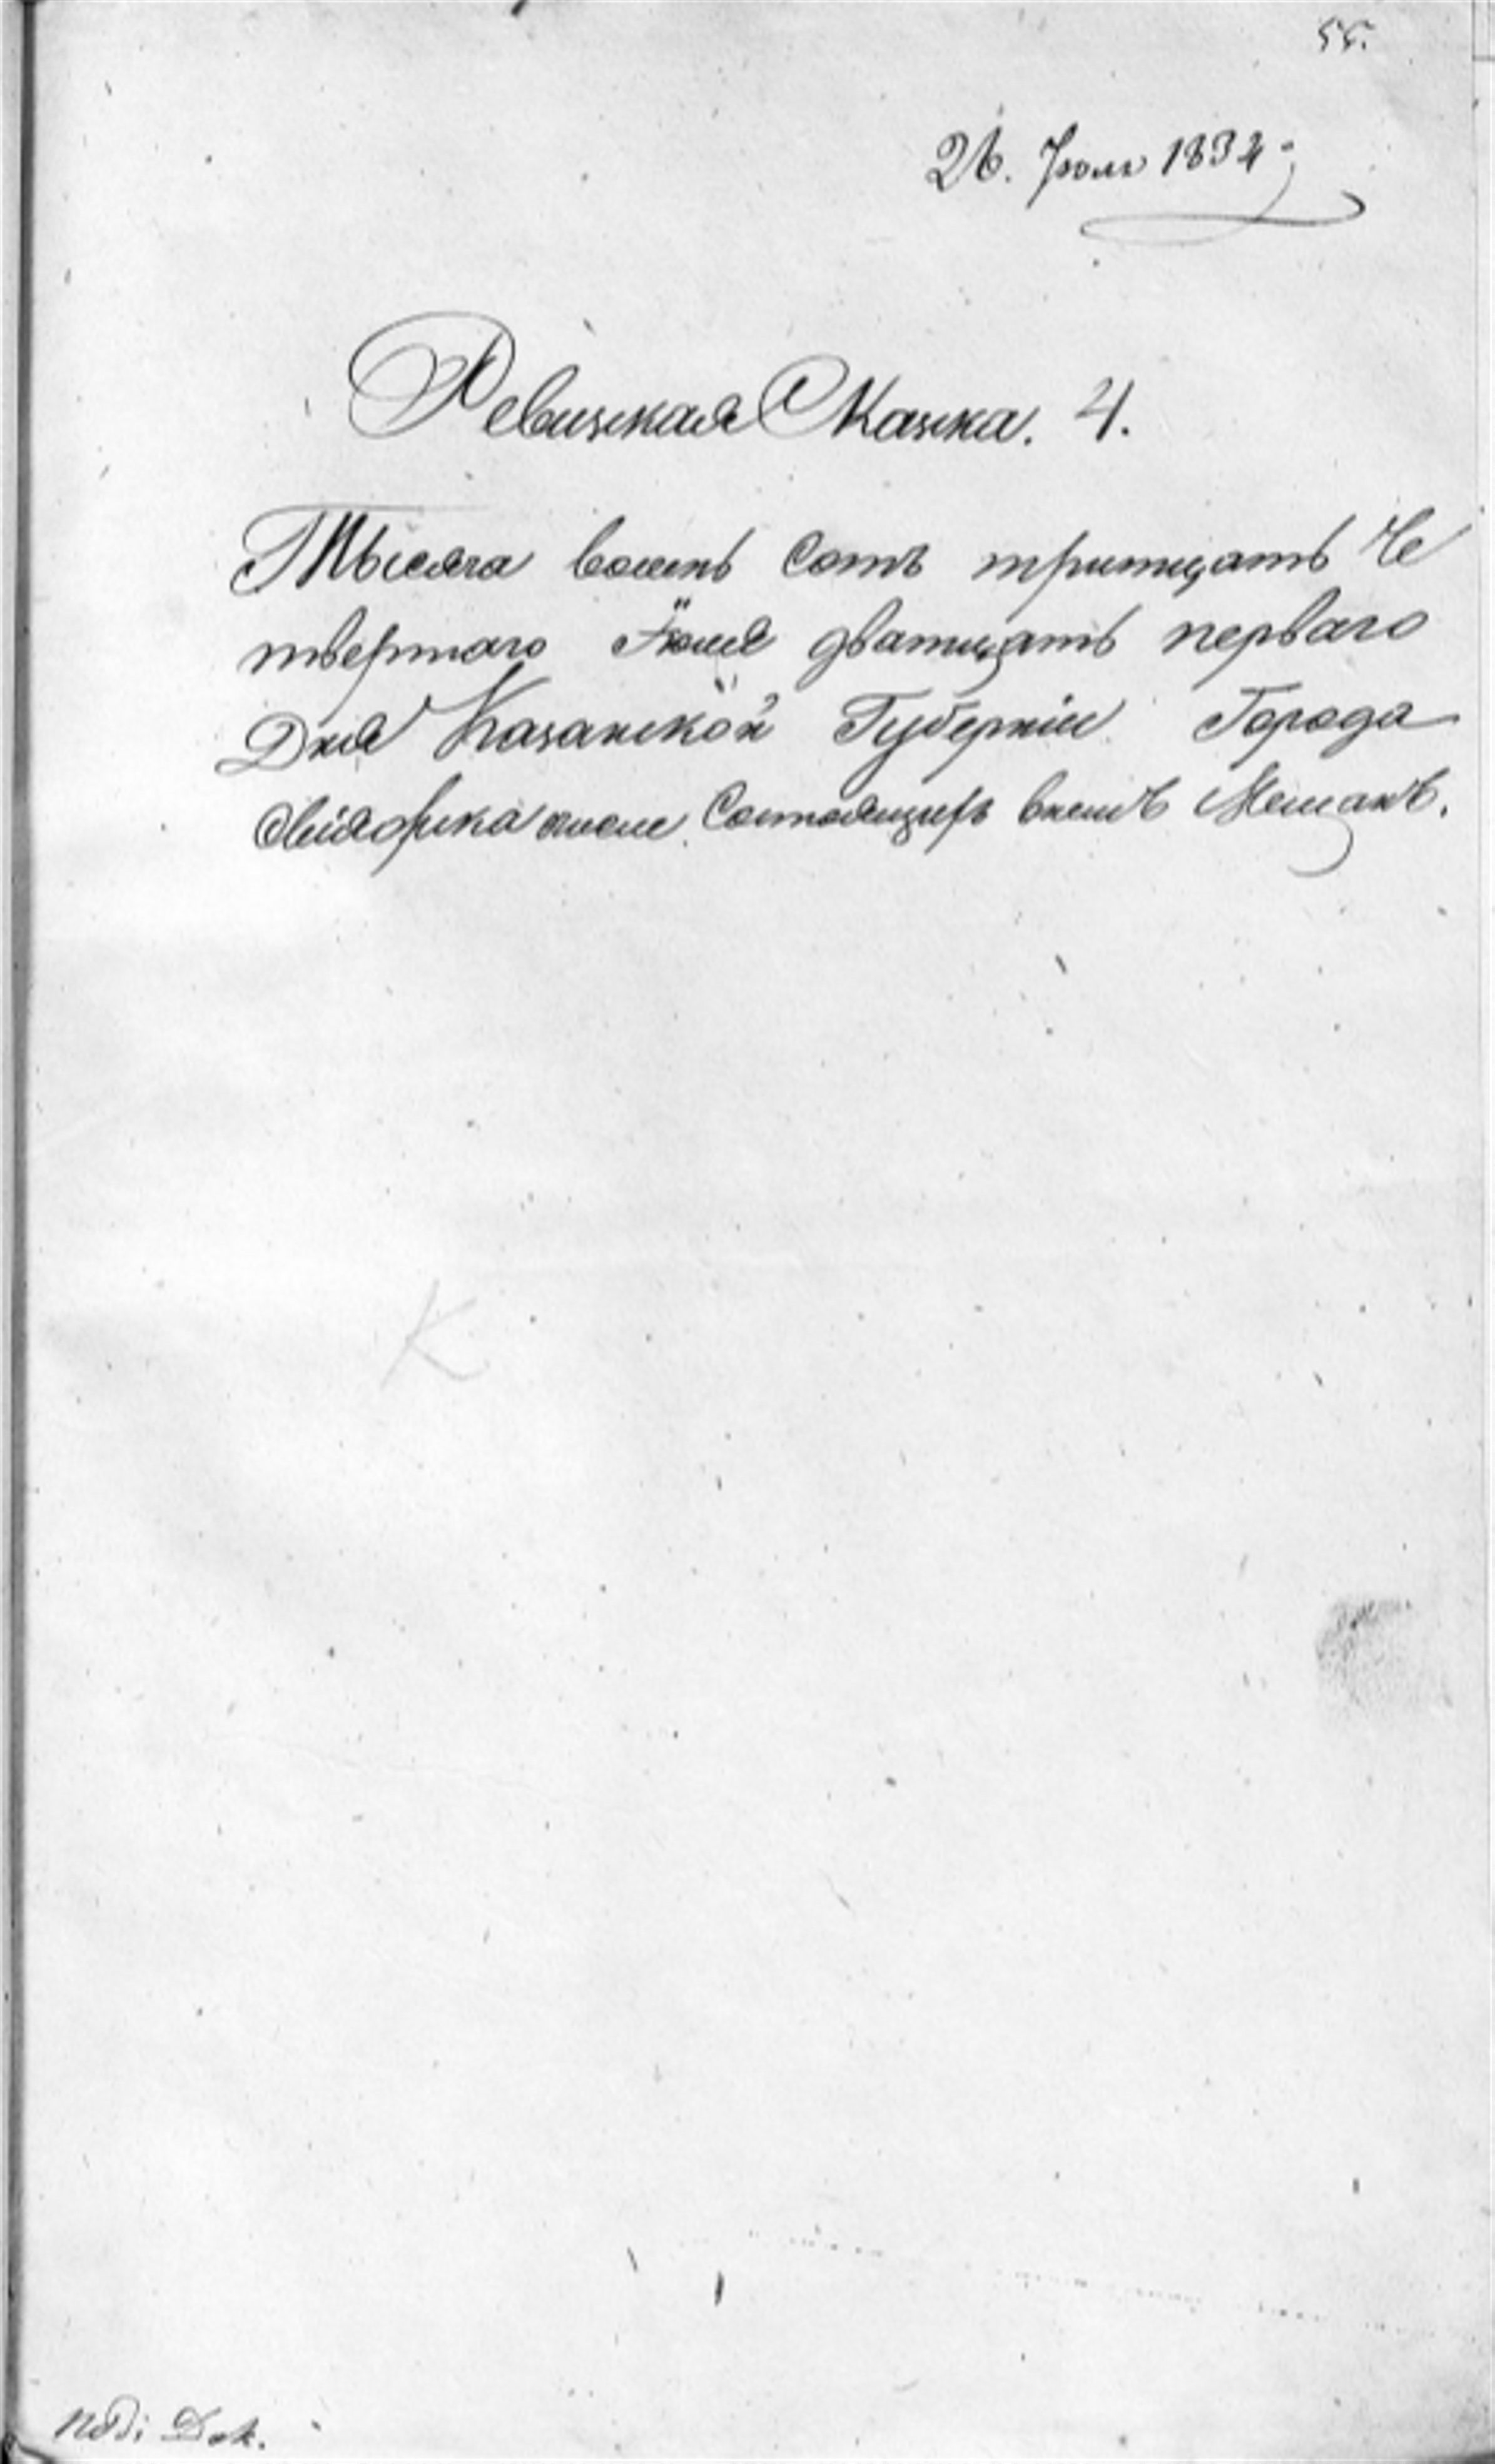 55.
26. Июля 1834
Ревизская Сказка. 4.
Тысяча восемь Сотъ тритцать Че
твертаго Іюля дватцать перваго
Дня Казанской Губерніи Города
Свіяжска Состоящихъ внемъ Мещанъ.
К